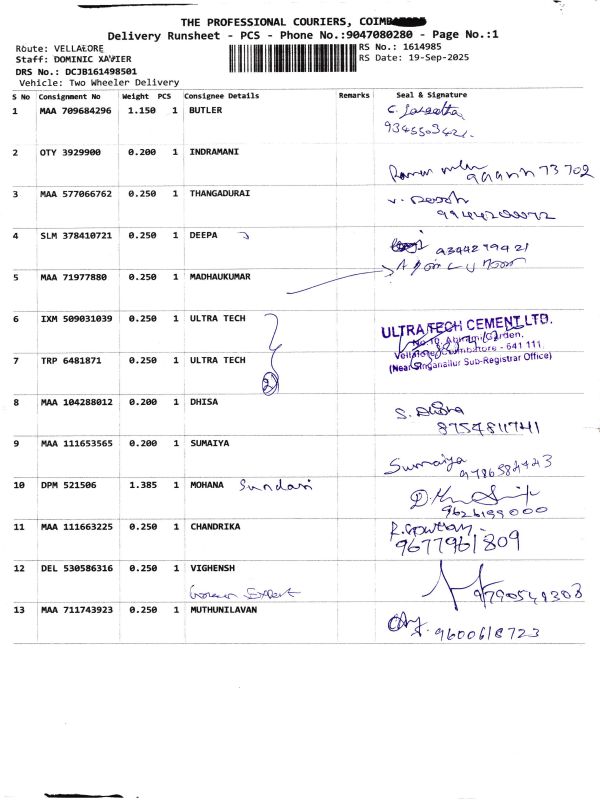 THE PROFESSIONAL COURIERS, COIMB
Delivery Runsheet - PCS - Phone No.:9047080280 - Page No.:1
Route: VELLALORE
Staff: DOMINIC XAVIER
DRS No.: DCJB161498501
Vehicle: Two Wheeler Delivery
RS No.: 1614985
RS Date: 19-Sep-2025
S No Consignment No Weight PCS Consignee Details Remarks Seal & Signature
1 MAA 709684296 1.150 1 BUTLER
2 OTY 3929900 0.200 1 INDRAMANI
3 MAA 577066762 0.250 1 THANGADURAI
4 SLM 378410721 0.250 1 DEEPA
9344279421
5 MAA 71977880 0.250 1 MADHAUKUMAR
6 IXM 509031039 0.250 1 ULTRA TECH
7 TRP 6481871 0.250 1 ULTRA TECH
2
ULTRA TECH CEMENT LTD.
No.10, Abirami Garden,
Vellalore, Coimbatore - 641 111.
(Near Singanallur Sub-Registrar Office)
8 MAA 104288012 0.200 1 DHISA
8754811741
9 MAA 111653565 0.200 1 SUMAIYA
Sumaiya
10 DPM 521506 1.385 1 MOHANA Sundari
9626199000
11 MAA 111663225 0.250 1 CHANDRIKA
R.Gowtham.
9677961809
12 DEL 530586316 0.250 1 VIGHENSH
13 MAA 711743923 0.250 1 MUTHUNILAVAN
9600618723